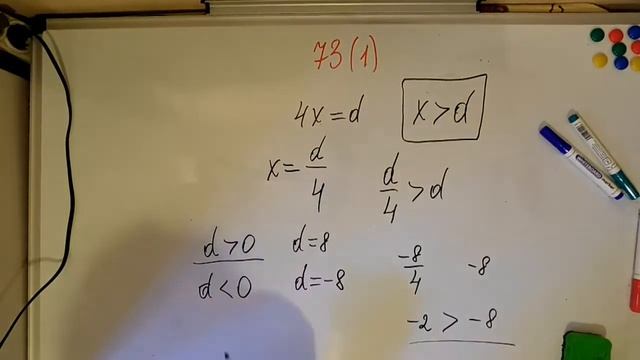 73(1)
4x=d x>d
x=d/4 d/4>d
d>0 d=8 -8/4 -8
d<0 d=-8
-2>-8